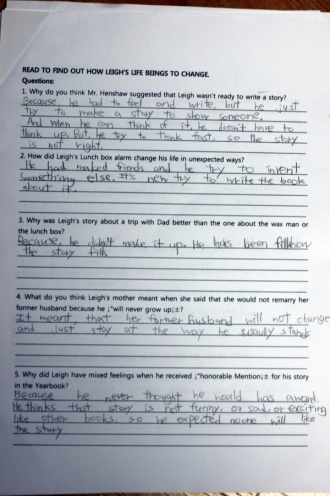 READ TO FIND OUT HOW LEIGH'S LIFE BEINGS TO CHANGE.
Questions:
1. Why do you think Mr. Henshaw suggested that Leigh wasn't ready to write a story?
Because he had to feel and write, but he just
try to make a story to show someone,
And when he can think of it, he doesn't have to
think up. But, he try to think fast, so the story
is not right.
2. How did Leigh's Lunch box alarm change his life in unexpected ways?
He had maked friends and he try to invent
something else. It's new try to write the book
about it.
3. Why was Leigh's story about a trip with Dad better than the one about the wax man or
the lunch box?
Because, he didn't make it up. He has been
the story
4. What do you think Leigh's mother meant when she said that she would not remarry her
former husband because he ¡°will never grow up¡±?
It meant, that her former husband will not change
and just stay at the way he usually stands
5. Why did Leigh have mixed feelings when he received ¡°honorable Mention¡± for his story
in the Yearbook?
Because he never thought he would has award.
He thinks that story is not funny, or sad, or exciting
like other books, so he expected no one will like
the story